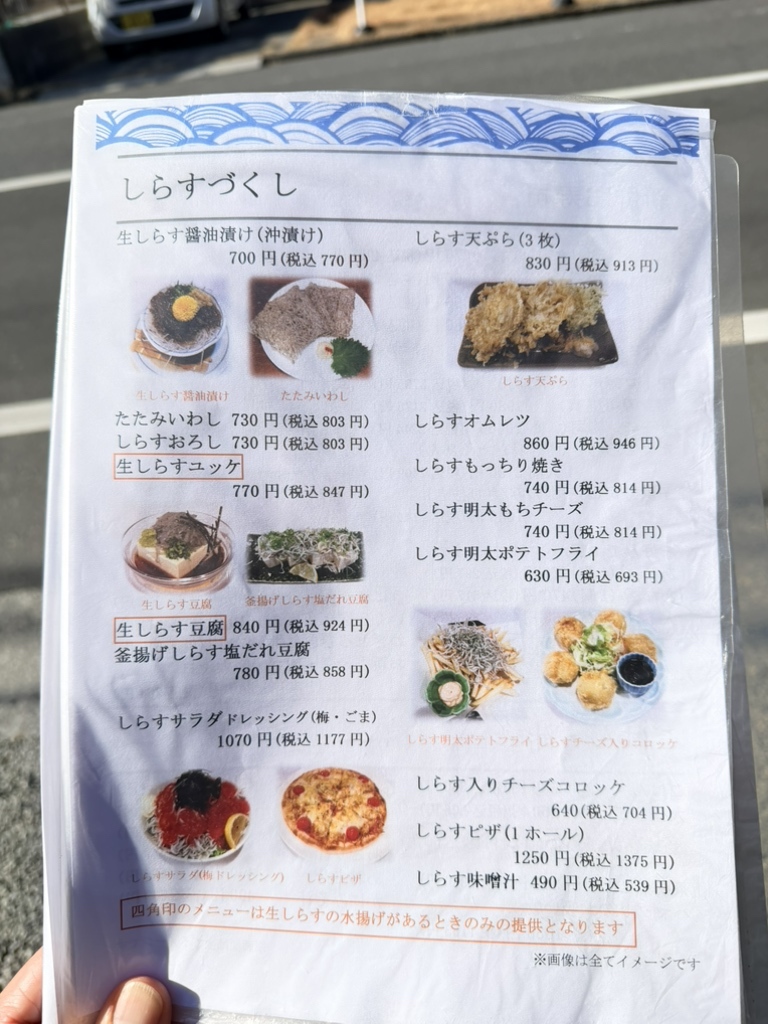 しらすづくし
生しらす醤油漬け(沖漬け)
700 円(税込 770 円)
生しらす醤油漬け
たたみいわし
たたみいわし 730 円(税込 803 円)
しらすおろし 730 円(税込 803 円)
生しらすユッケ
770 円(税込 847 円)
生しらす豆腐
釜揚げしらす塩だれ豆腐
生しらす豆腐 840 円(税込 924 円)
釜揚げしらす塩だれ豆腐
780 円(税込 858 円)
しらすサラダドレッシング(梅・ごま)
1070 円(税込 1177 円)
しらすサラダ(梅ドレッシング)
しらすピザ
しらす天ぷら(3 枚)
830 円(税込 913 円)
しらす天ぷら
しらすオムレツ
860 円(税込 946 円)
しらすもっちり焼き
740 円(税込 814 円)
しらす明太もちチーズ
740 円(税込 814 円)
しらす明太ポテトフライ
630 円(税込 693 円)
しらす明太ポテトフライ
しらすチーズ入りコロッケ
しらす入りチーズコロッケ
640(税込 704 円)
しらすピザ(1 ホール)
1250 円(税込 1375 円)
しらす味噌汁 490 円(税込 539 円)
四角印のメニューは生しらすの水揚げがあるときのみの提供となります
※画像は全てイメージです